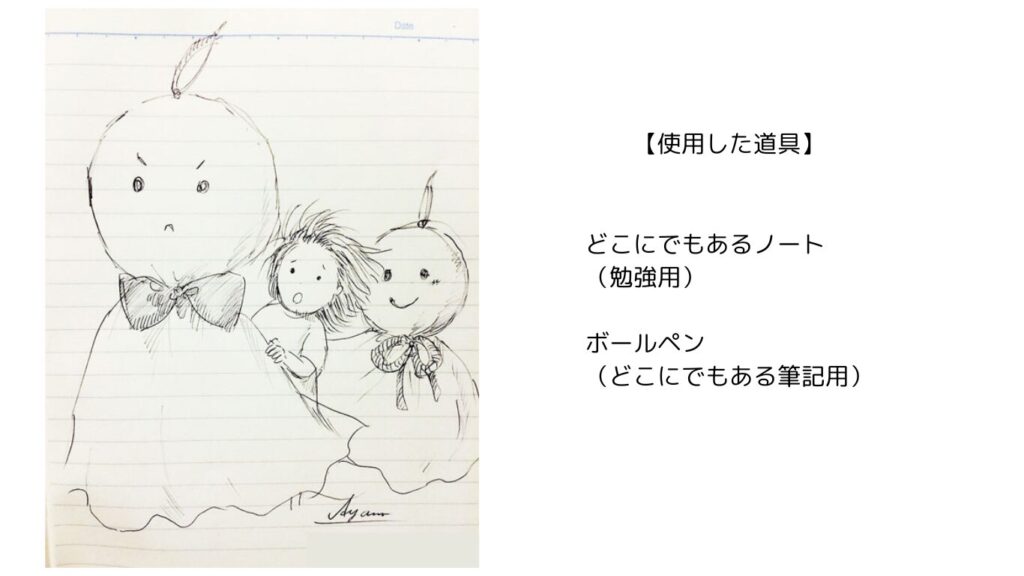 Date
【使用した道具】
どこにでもあるノート
（勉強用）
ボールペン
（どこにでもある筆記用）